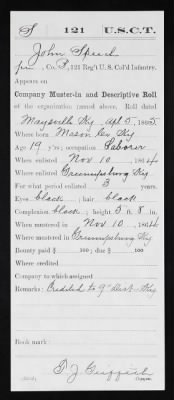 S 121 U.S.C.T.
John Speed
Co. 121 Reg't U.S. Col'd Infantry.
Appears on
Company Muster-in and Descriptive Roll
of the organization named above. Roll dated
Maysville Ky Apl 5, 1865
Where born Mason Co. Ky
Age 19 y'rs; occupation Laborer
When enlisted Nov 10, 1864
Where enlisted Greenupsburg Ky
For what period enlisted 3 years.
Eyes black; hair black
Complexion black; height 5 ft. 8 in.
When mustered in Nov 10, 1864
Where mustered in Greenupsburg Ky
Bounty paid $ 100; due $ 100
Where credited
Company to which assigned
Remarks: Credited to 9" Dist. Ky
Book mark:
J Griffith
Copyist.